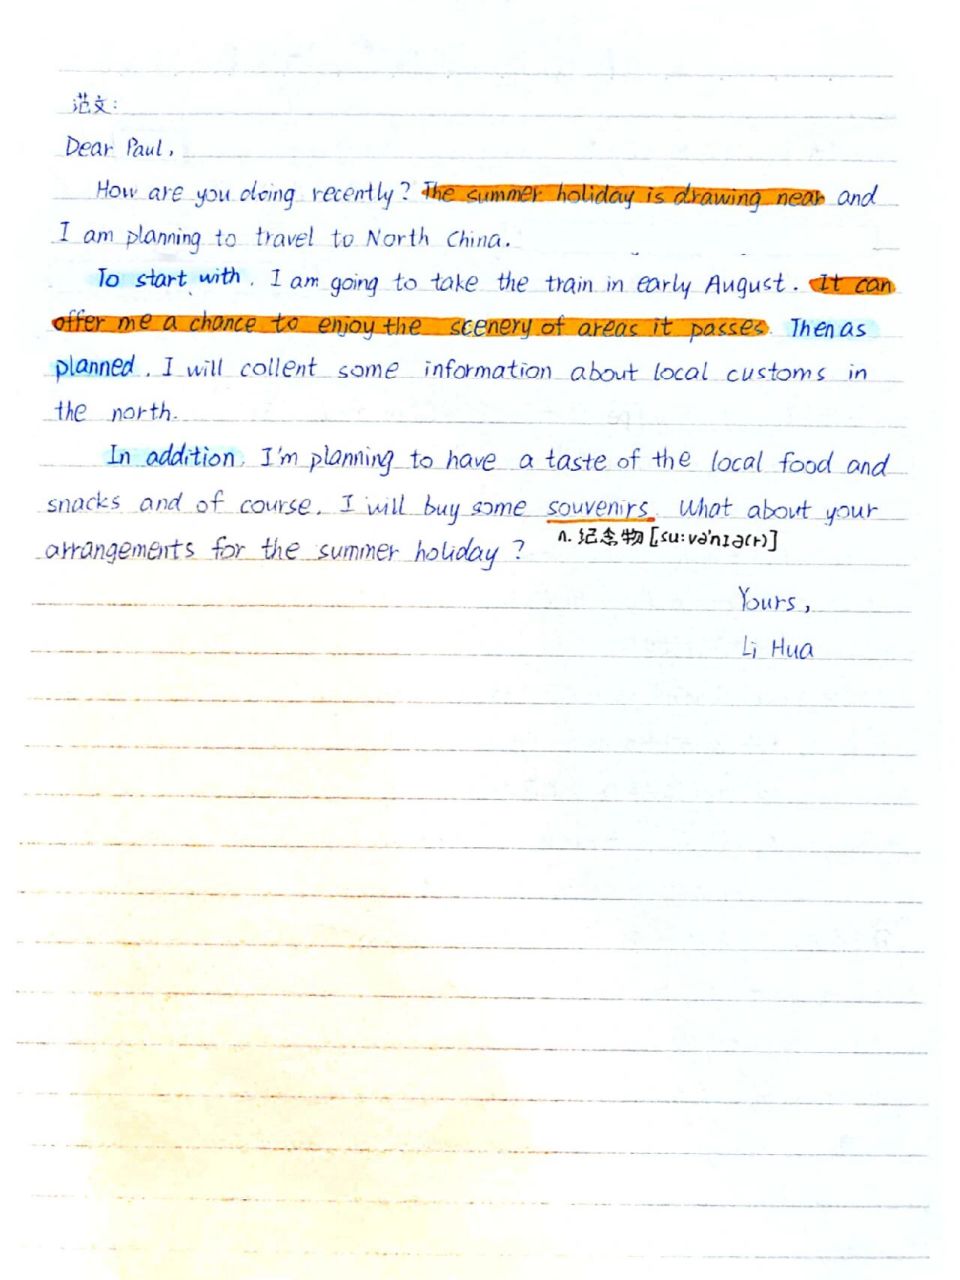 范文:
Dear Paul,
How are you doing recently? The summer holiday is drawing near and
I am planning to travel to North China.
To start with, I am going to take the train in early August. It can
offer me a chance to enjoy the scenery of areas it passes. Then as
planned, I will collent some information about local customs in
the north.
In addition, I'm planning to have a taste of the local food and
snacks and of course, I will buy some souvenirs. What about your
arrangements for the summer holiday?
n. 纪念物 [su:və'nɪə(r)]
Yours,
Li Hua